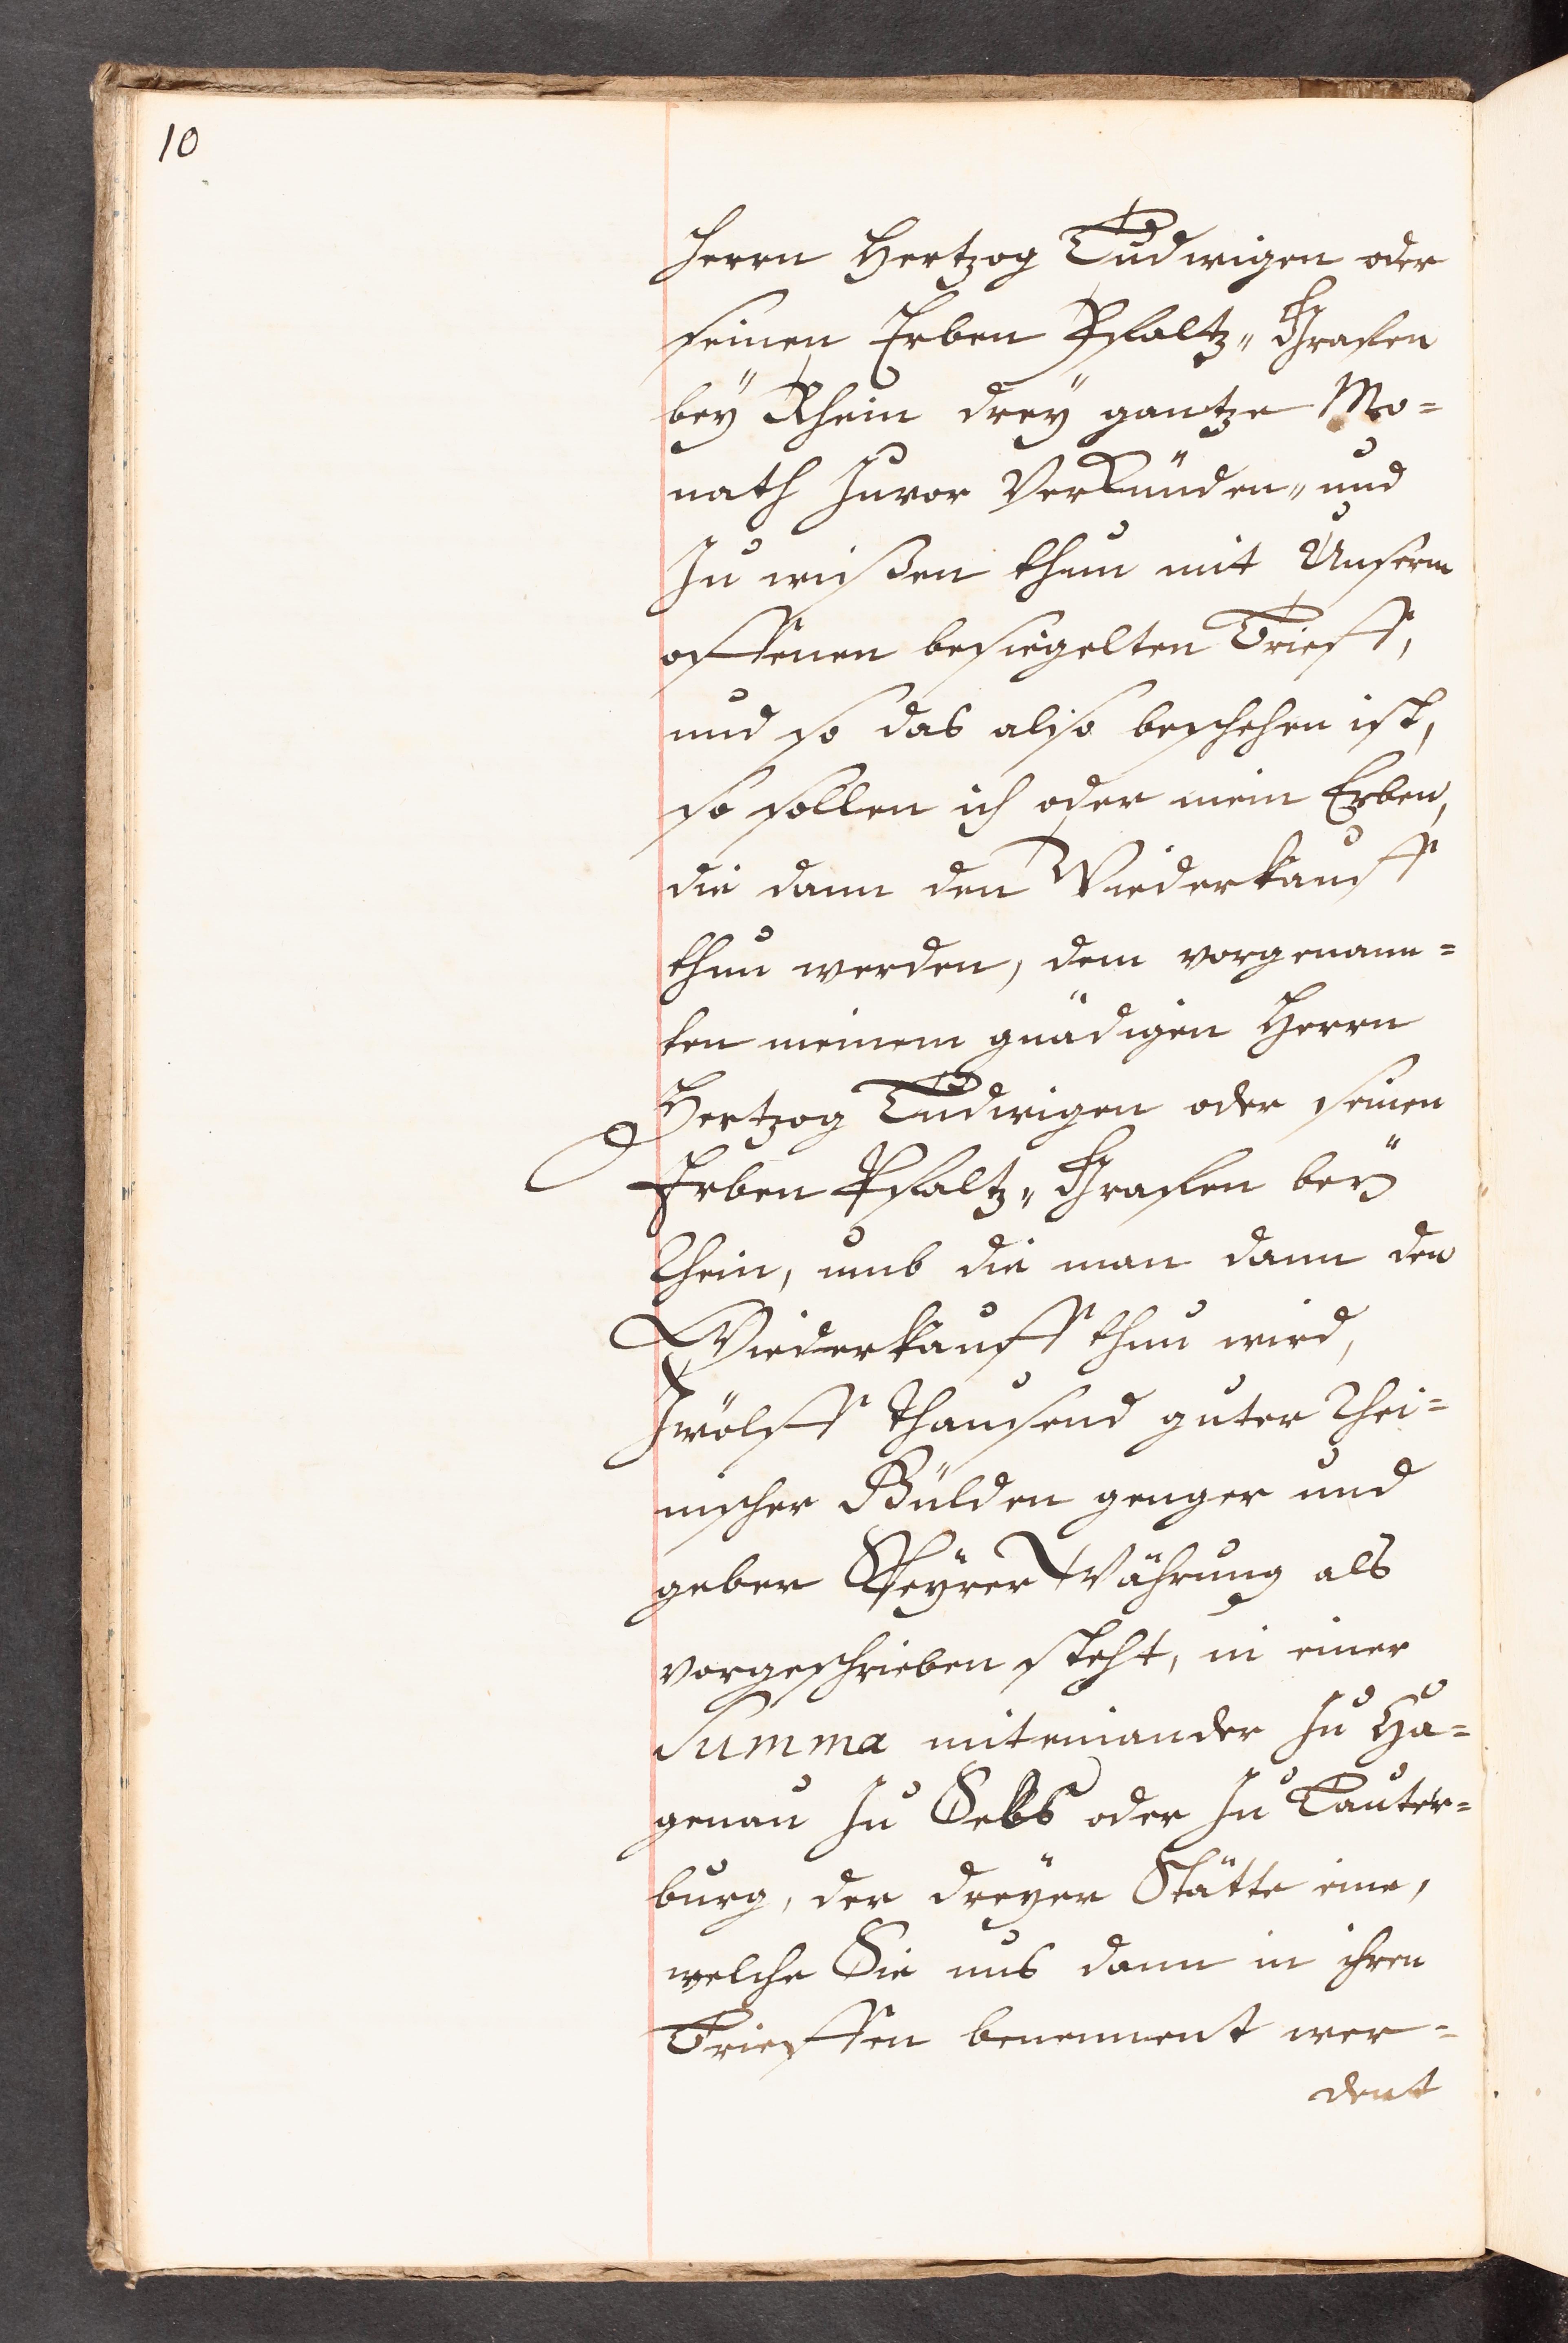 10
Herrn Hertzog Ludwigen oder
seinen Erben Pfaltz„ Grafen
beÿ Rhein dreÿ gantze Mo=
nath zuvor Verkünden„ und
zu wißen thun mit Unserm
offenen besiegelten Brieff,
und so das also beschehen ist,
so sollen ich oder mein Erben,
die dann den Wiederkauff
thun werden, dem vorgenann=
ten meinem gnädigen Herrn
Hertzog Ludwigen oder seinen
Erben Pfaltz„ Grafen beÿ
Rhein, umb die man dann den
Wiederkauff thun wird,
Zwölff thausend guter Rhei=
nischer Gülden genger und
geber Speÿrer Währung als
vorgeschrieben steht, in einer
Summa miteinander zu Ha=
genau zu Selß oder zu Lauter=
burg, der dreÿer Stätte eine,
welche Sie uns dann in ihren
Brieffen benennent wer=
dent